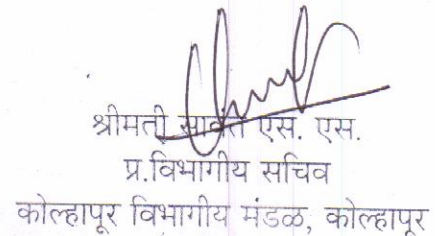 श्रीमती सावंत एस. एस.
प्र.विभागीय सचिव
कोल्हापूर विभागीय मंडळ, कोल्हापूर